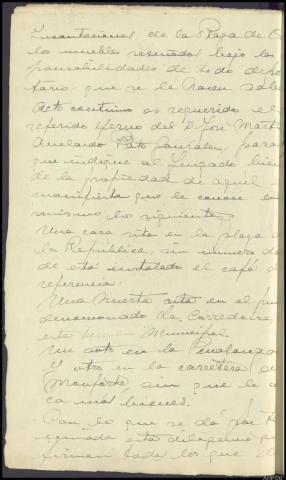 Incautaciones de la Plaza de O
lo muebles reseñados bajo las
ponsabilidades de todo depo
tario que se le hacen sabe
Acto continuo es requerido el
referido yerno del D José Mart
Avelardo Pato González, para
que indique al Juzgado bien
de la propiedad de aquél
manifiesta que le conoce co
mismo los siguientes
Una casa sita en la plaza d
la República, sin numero do
de está instalado el café d
referencia:
Una Huerta sita en el pun
denominado La Corredoira,
este termino Municipal.
Un soto en la Penalonga
y otro en la carretera d
Monforte, sin que le co
ca más bienes.
Con lo que se dá por te
minada esta diligencia qu
firman todos los que